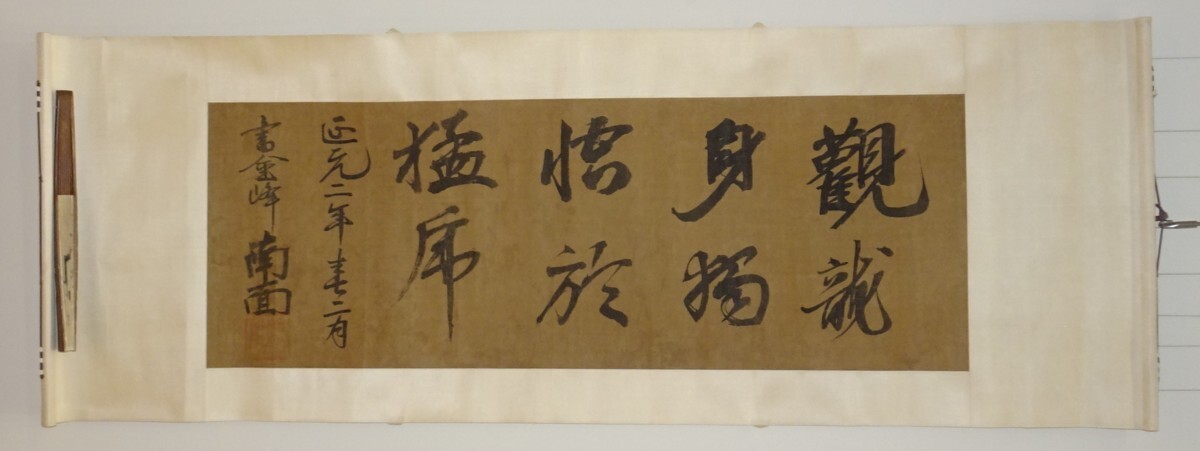 觀龍
身獨
悟於
猛虎
延元二年春二月
書金峰
南面